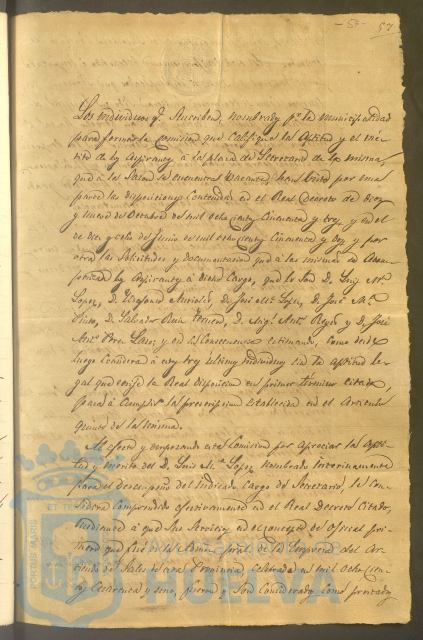 - 53 -
57
Los individuos q.e suscriben, nombrados p.r la municipalidad
para formar la comision que califique la aptitud y el mé-
rito de los aspirantes á la plaza de Secretario de la misma,
que á la sazon se encuentra vacante, han visto por una
parte las disposiciones contenidas en el Real Decreto de diez
y nueve de Octubre de mil ochocientos cincuenta y tres, y en el
de diez y ocho de Junio de mil ochocientos cincuenta y dos y por
otra las solicitudes y documentacion que á las mismas
los aspirantes á dicho cargo, que lo son D. Luis M.a
Lopez, D. José M.a Lopez, D. José M.a
Pinto, D. Salvador Ruiz D. Mig.l Ant.o Reyes y D. José
Ant.o y en su consecuencia estimando, como desde
luego considera á estos tres ultimos individuos sin la aptitud le-
gal que exige la Real disposicion en primer término citada,
para á cumplir la prescripcion establecida en el articulo
quinto de la misma.
Al efecto y empezando esta Comision por apreciar la apti-
tud y mérito del D. Luis M.a Lopez nombrado interinamente
para el desempeño del indicado cargo de Secretario, le con-
sidera comprendido efectivamente en el Real Decreto citado,
mediante á que sus servicios en el concepto de oficial pri-
mero que fué de la pral. de la del ar-
de Sales de esta Provincia, celebrada en mil ochocien-
tos cuarenta y uno, fueron y son considerados como prestados
PORTUS MARIS
ET TER
HUELVA